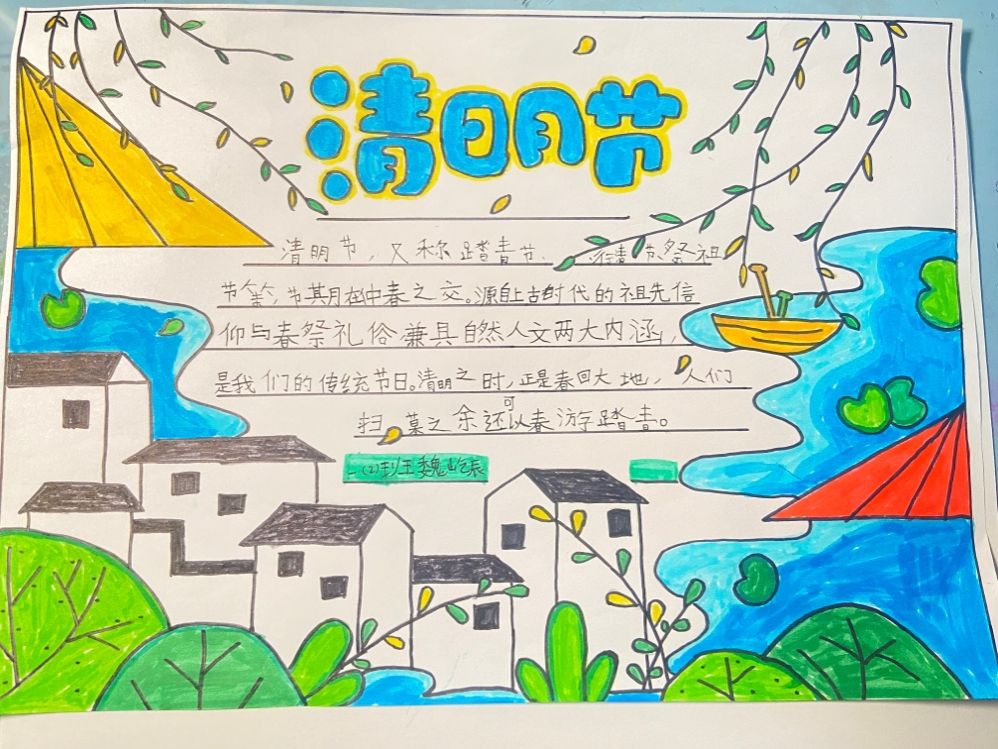 清明节
清明节，又称踏青节、行清节、祭祖
节等，节其月在中春之交。源自上古时代的祖先信
仰与春祭礼俗兼具自然人文两大内涵，
是我们的传统节日。清明之时，正是春回大地，人们
扫墓之余还可以春游踏青。
(2)班王魏